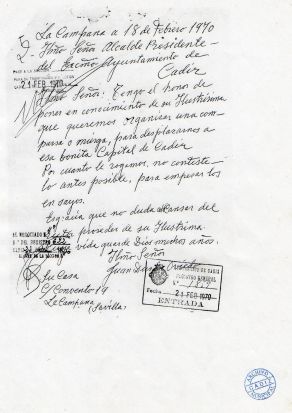 La Campana a 18 de Febrero 1970
Ilmo Señor Alcalde Presidente
del Excmo Ayuntamiento de
Cadiz
21 FEB 1970
Ilmo Señor: Tengo el honor de
poner en conocimiento de su Ilustrisima
que queremos organizar una com
parsa o murga, para desplazarnos a
esa bonita Capital de Cadiz
Por cuanto le rogamos, nos conteste
lo antes posible, para empesar los
ensayos.
Es gracia que no duda alcansar del
proseder de su Ilustrima.
vida guarde Dios muchos años.
Ilmo Señor
Juan
EL NEGOCIADO
Nº DEL REGISTRO
21 FEB 1970
Su Casa
C/ Convento 19
La Campana
(Sevilla)
AYUNTAMIENTO DE CADIZ
REGISTRO GENERAL
Nº
Fecha 21 FEB 1970
ENTRADA
ARCHIVO
CADIZ